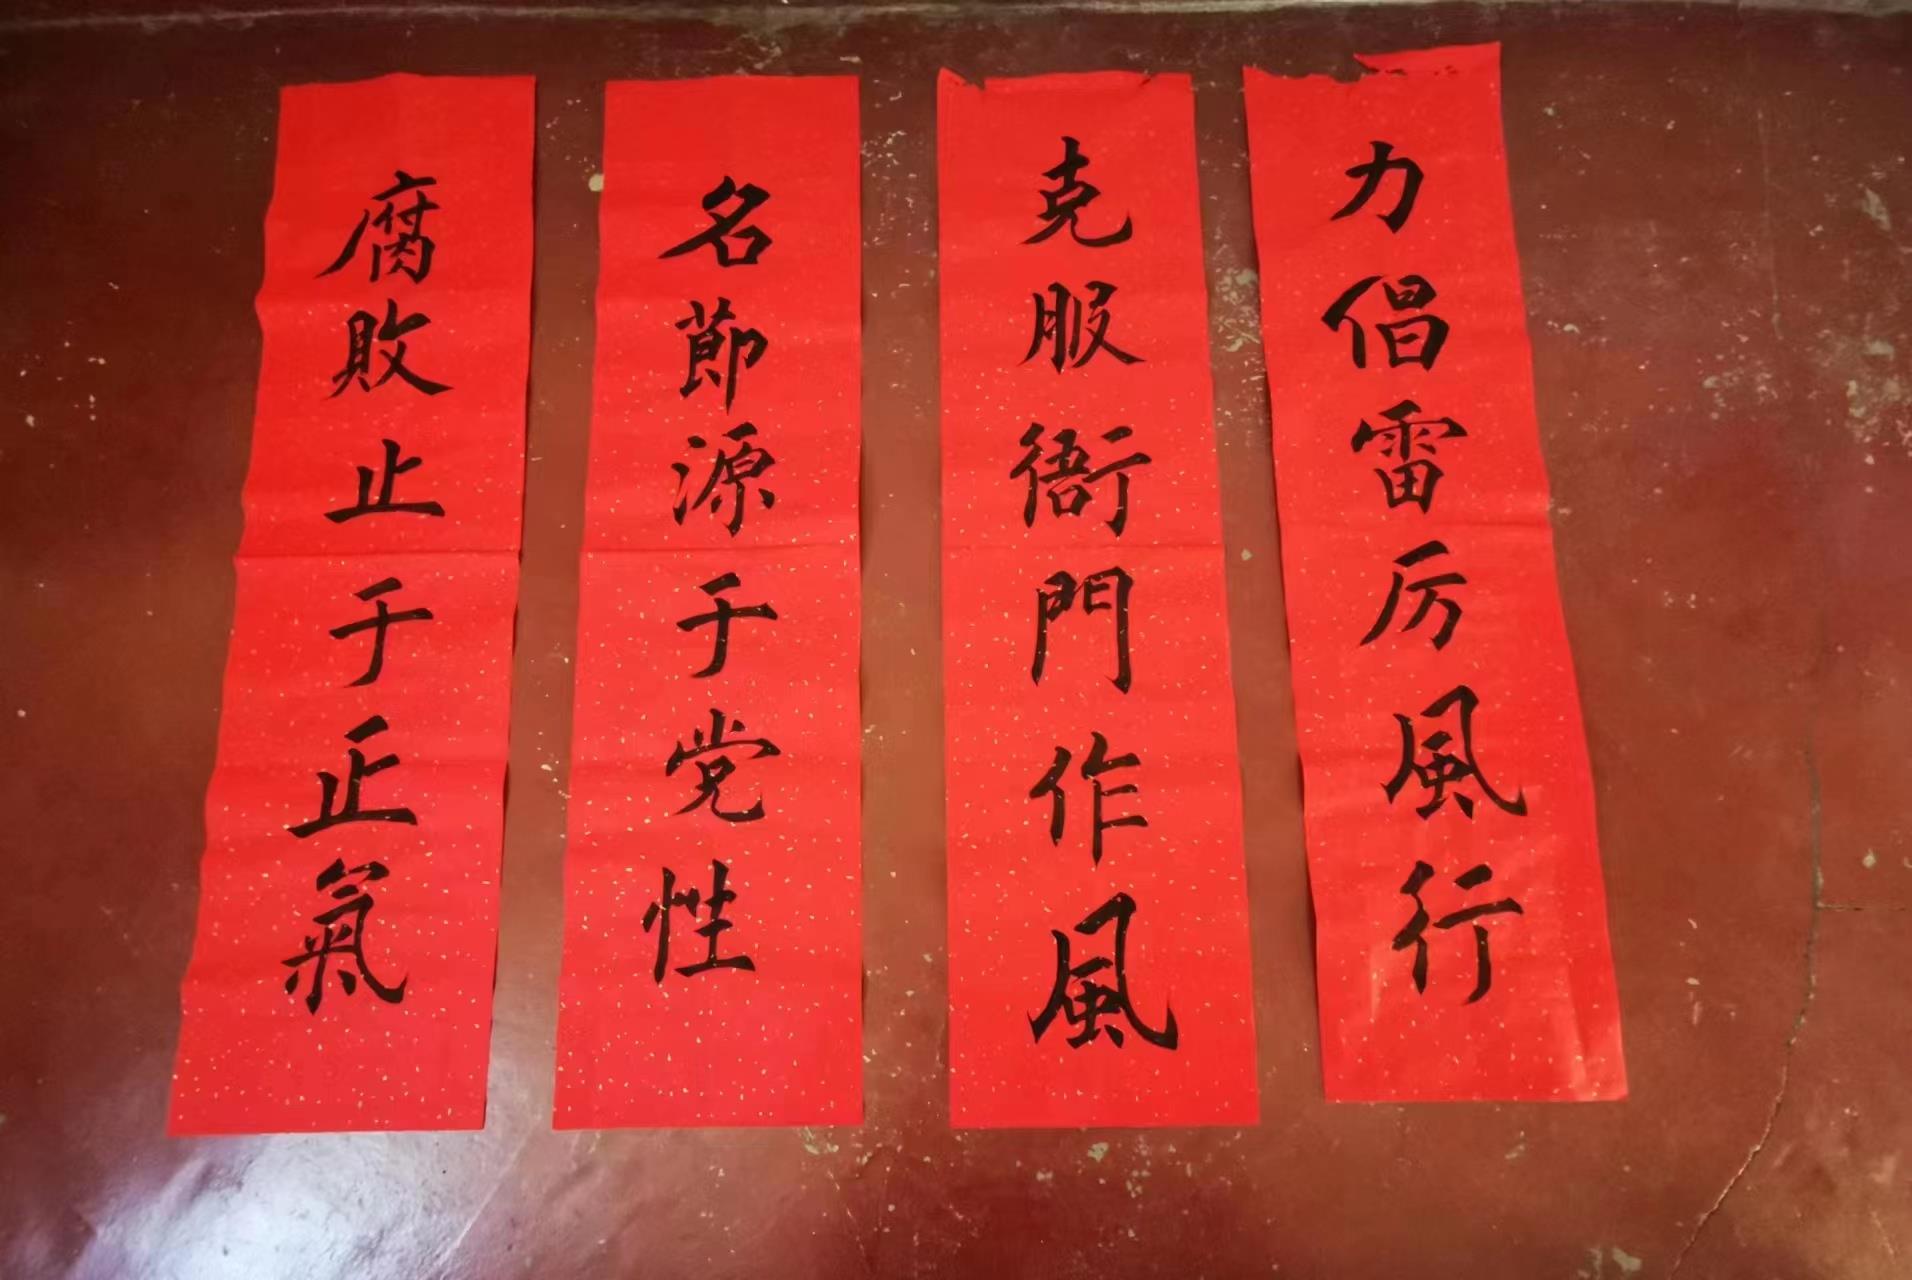 力倡雷厉風行
克服衙門作風
名節源于党性
腐敗止于正氣